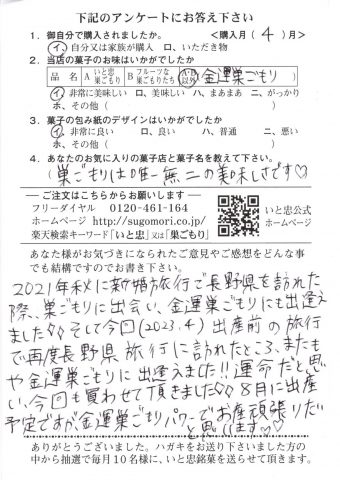 下記のアンケートにお答え下さい
1．御自分で購入されましたか。　＜購入月（ 4 ）月＞
イ、自分又は家族が購入　ロ、いただき物
2．当店の菓子のお味はいかがでしたか
品　名　A いと忠巣ごもり　B フルーツな巣ごもりたち　A・B以外（金運巣ごもり）
イ、非常に美味しい　ロ、美味しい　ハ、まあまあ　ニ、がっかり
ホ、その他（　　　）
3．菓子の包み紙のデザインはいかがでしたか
イ、非常に良い　ロ、良い　ハ、普通　ニ、悪い
ホ、その他（　　　）
4．あなたのお気に入りの菓子店と菓子名を教えて下さい。
（巣ごもりは唯一無二の美味しさです♡）
―ご注文はこちらからお願いします―
フリーダイヤル　0120-461-164
ホームページ　http://sugomori.co.jp/
楽天検索キーワード「いと忠」又は「巣ごもり」
いと忠公式
ホームページ
あなた様がお気づきになられたご意見やご感想をどんな事
でも結構ですのでお書き下さい。
2021年秋に新婚旅行で長野県を訪れた
際、巣ごもりに出会い、金運巣ごもりにも出逢え
ました♡♡そして今回(2023.4)出産前の旅行
で再度長野県旅行に訪れたところ、またも
や金運巣ごもりに出逢えました!!運命だと思
い、今回も買わせて頂きました♡♡8月に出産
予定ですが、金運巣ごもりパワーでお産頑張りたい
と思います♡♡
ありがとうございました。ハガキをお送り下さいました方の
中から抽選で毎月10名様に、いと忠銘菓を送らせて頂きます。